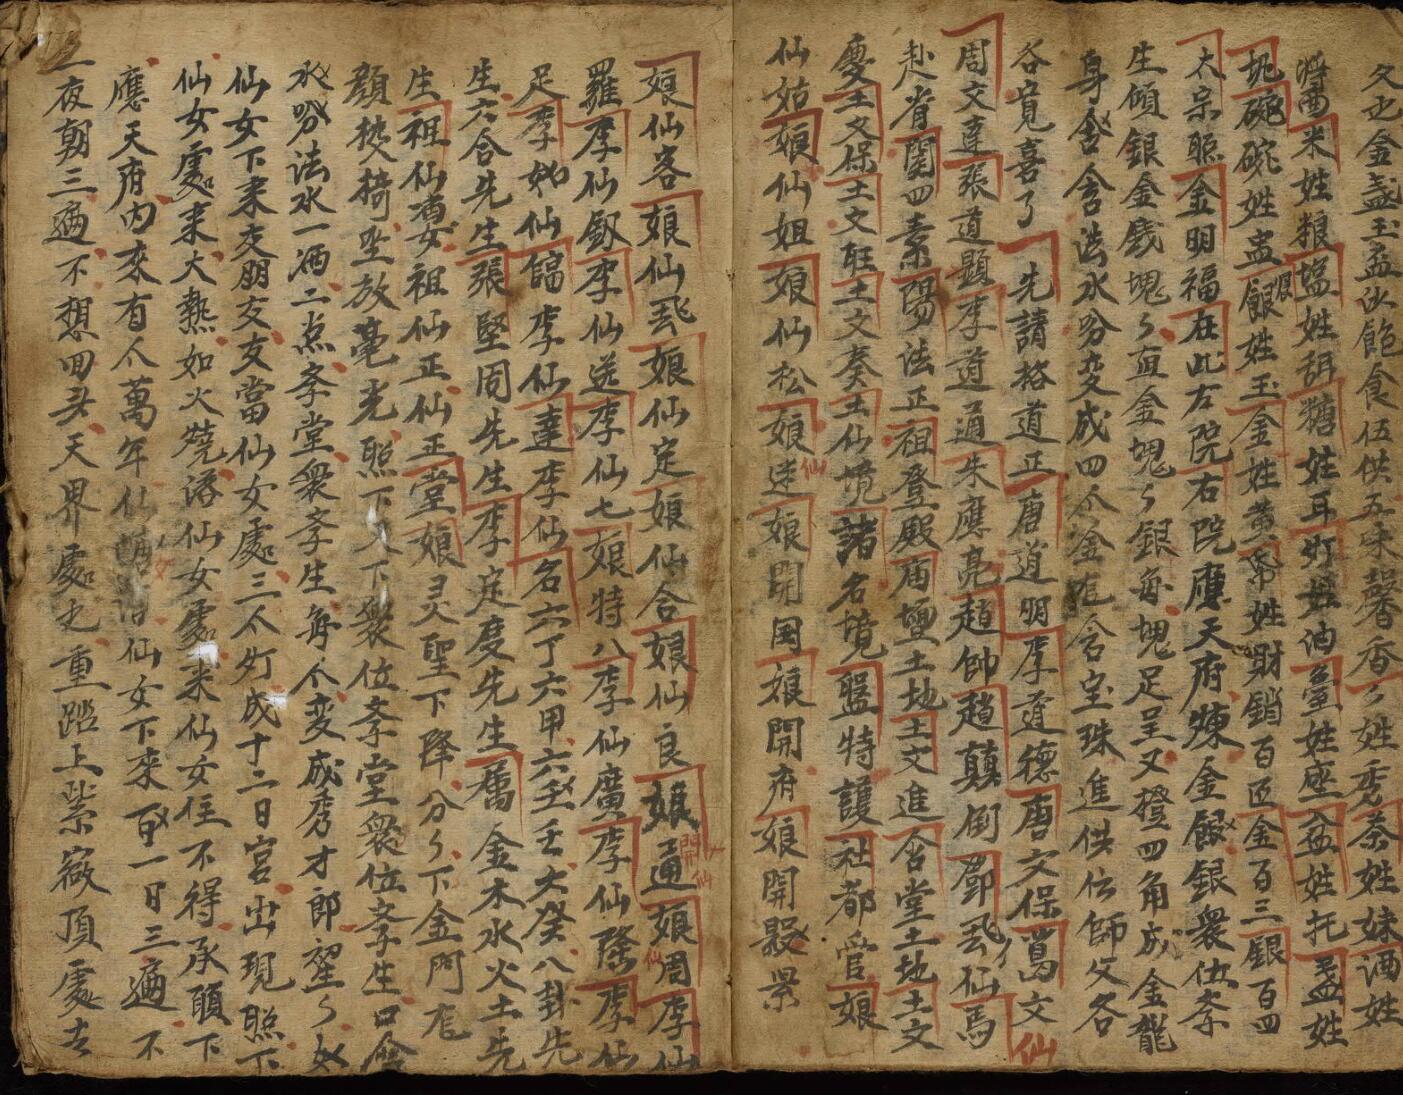 父也金盞玉盃沙飽食伍供五味馨香々姓秀茶姓妹酒姓
將酉米姓粮塩姓頡糖姓耳灯姓油臺姓座盆姓托盏姓
碗碗姓盅銀姓玉金姓黄帛姓財錢百匹金百三銀百四
太宗照金明福在此左院右院應天府煉金銀銀衆位李
生傾銀金錢塊々這金塊々銀每塊足呈又橙四角成金龍
身含含法水吩变成四个金龍含宝珠進供位師父各
各寬喜了先請格道正唐道明李道德唐文保萬文仙
周文達張道顯李道通朱應亮趙帥趙顛倒鄧飛仙馬
赴肖開四素陽法正祖登殿庙壇土地王文進合堂土地王文
慶王文保王文旺王文奏王仙境諸名境盤特護社都官娘
仙姑娘仙姐娘仙松娘迷娘開国娘開府娘開殿景
娘仙客娘仙飛娘仙定娘仙合娘仙良娘通娘周李仙
羅李仙釵李仙送李仙七娘特八李仙廣李仙隆李仙
足李她仙篇李仙達李仙名六丁六甲六壬壬大癸八卦先
生六合先生張堅固先生李定度先生萬金木水火土先
生祖仙馮女祖仙正仙正堂娘灵聖下降分々下金門龍
顔焚椅坐放毫光照下下衆位李堂衆位李生口含
水吩法水一洒二点李堂衆李生每个变成秀才郎望々女
仙女下来交朋友友當仙女處三个灯成十二日宮出現照下
仙女處来大熱如火燒落仙女處来仙女住不得承願下
應天府內來有个萬年仙仙女下來百一日三遍不
一夜朝三遍不想回头天界處也重踏上紫薇頂處去